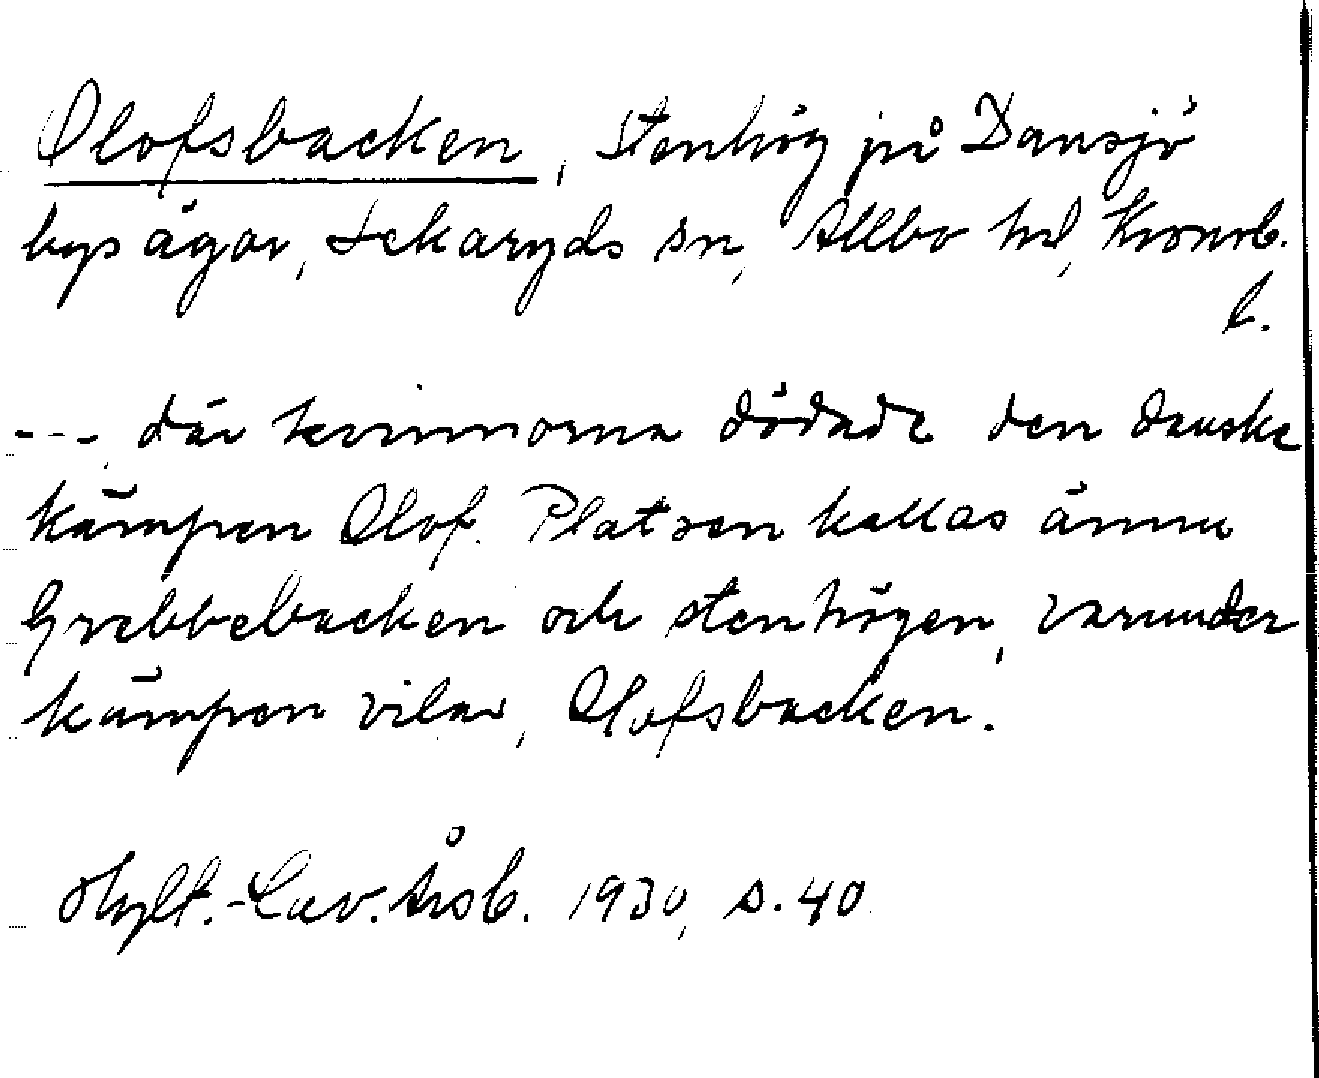 Olofsbacken, stenhög på Dansjö
bys ägor, Lekaryds sn, Allbo hd, Kronob.
l.
--- där kvinnorna dödade den danske
kämpen Olof. Platsen kallas ännu
Grebbebacken och stenhögen, varunder
kämpen vilar, Olofsbacken.
Hylt.-Cav. Årsb. 1930, s. 40